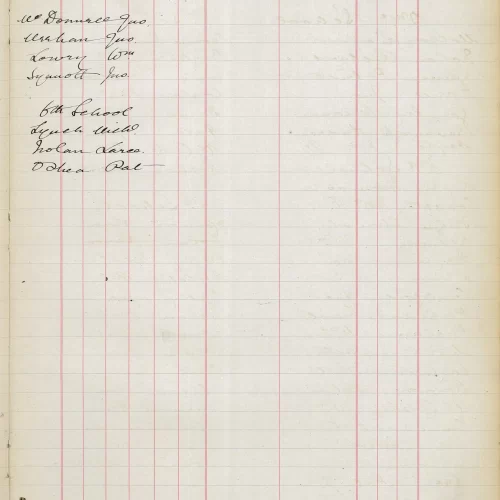 Mc Donnell Jno
Meehan Jno
Lowry Wm
Synnott Jno
6th School
Lynch Michl
Nolan Larce.
O Shea Pat